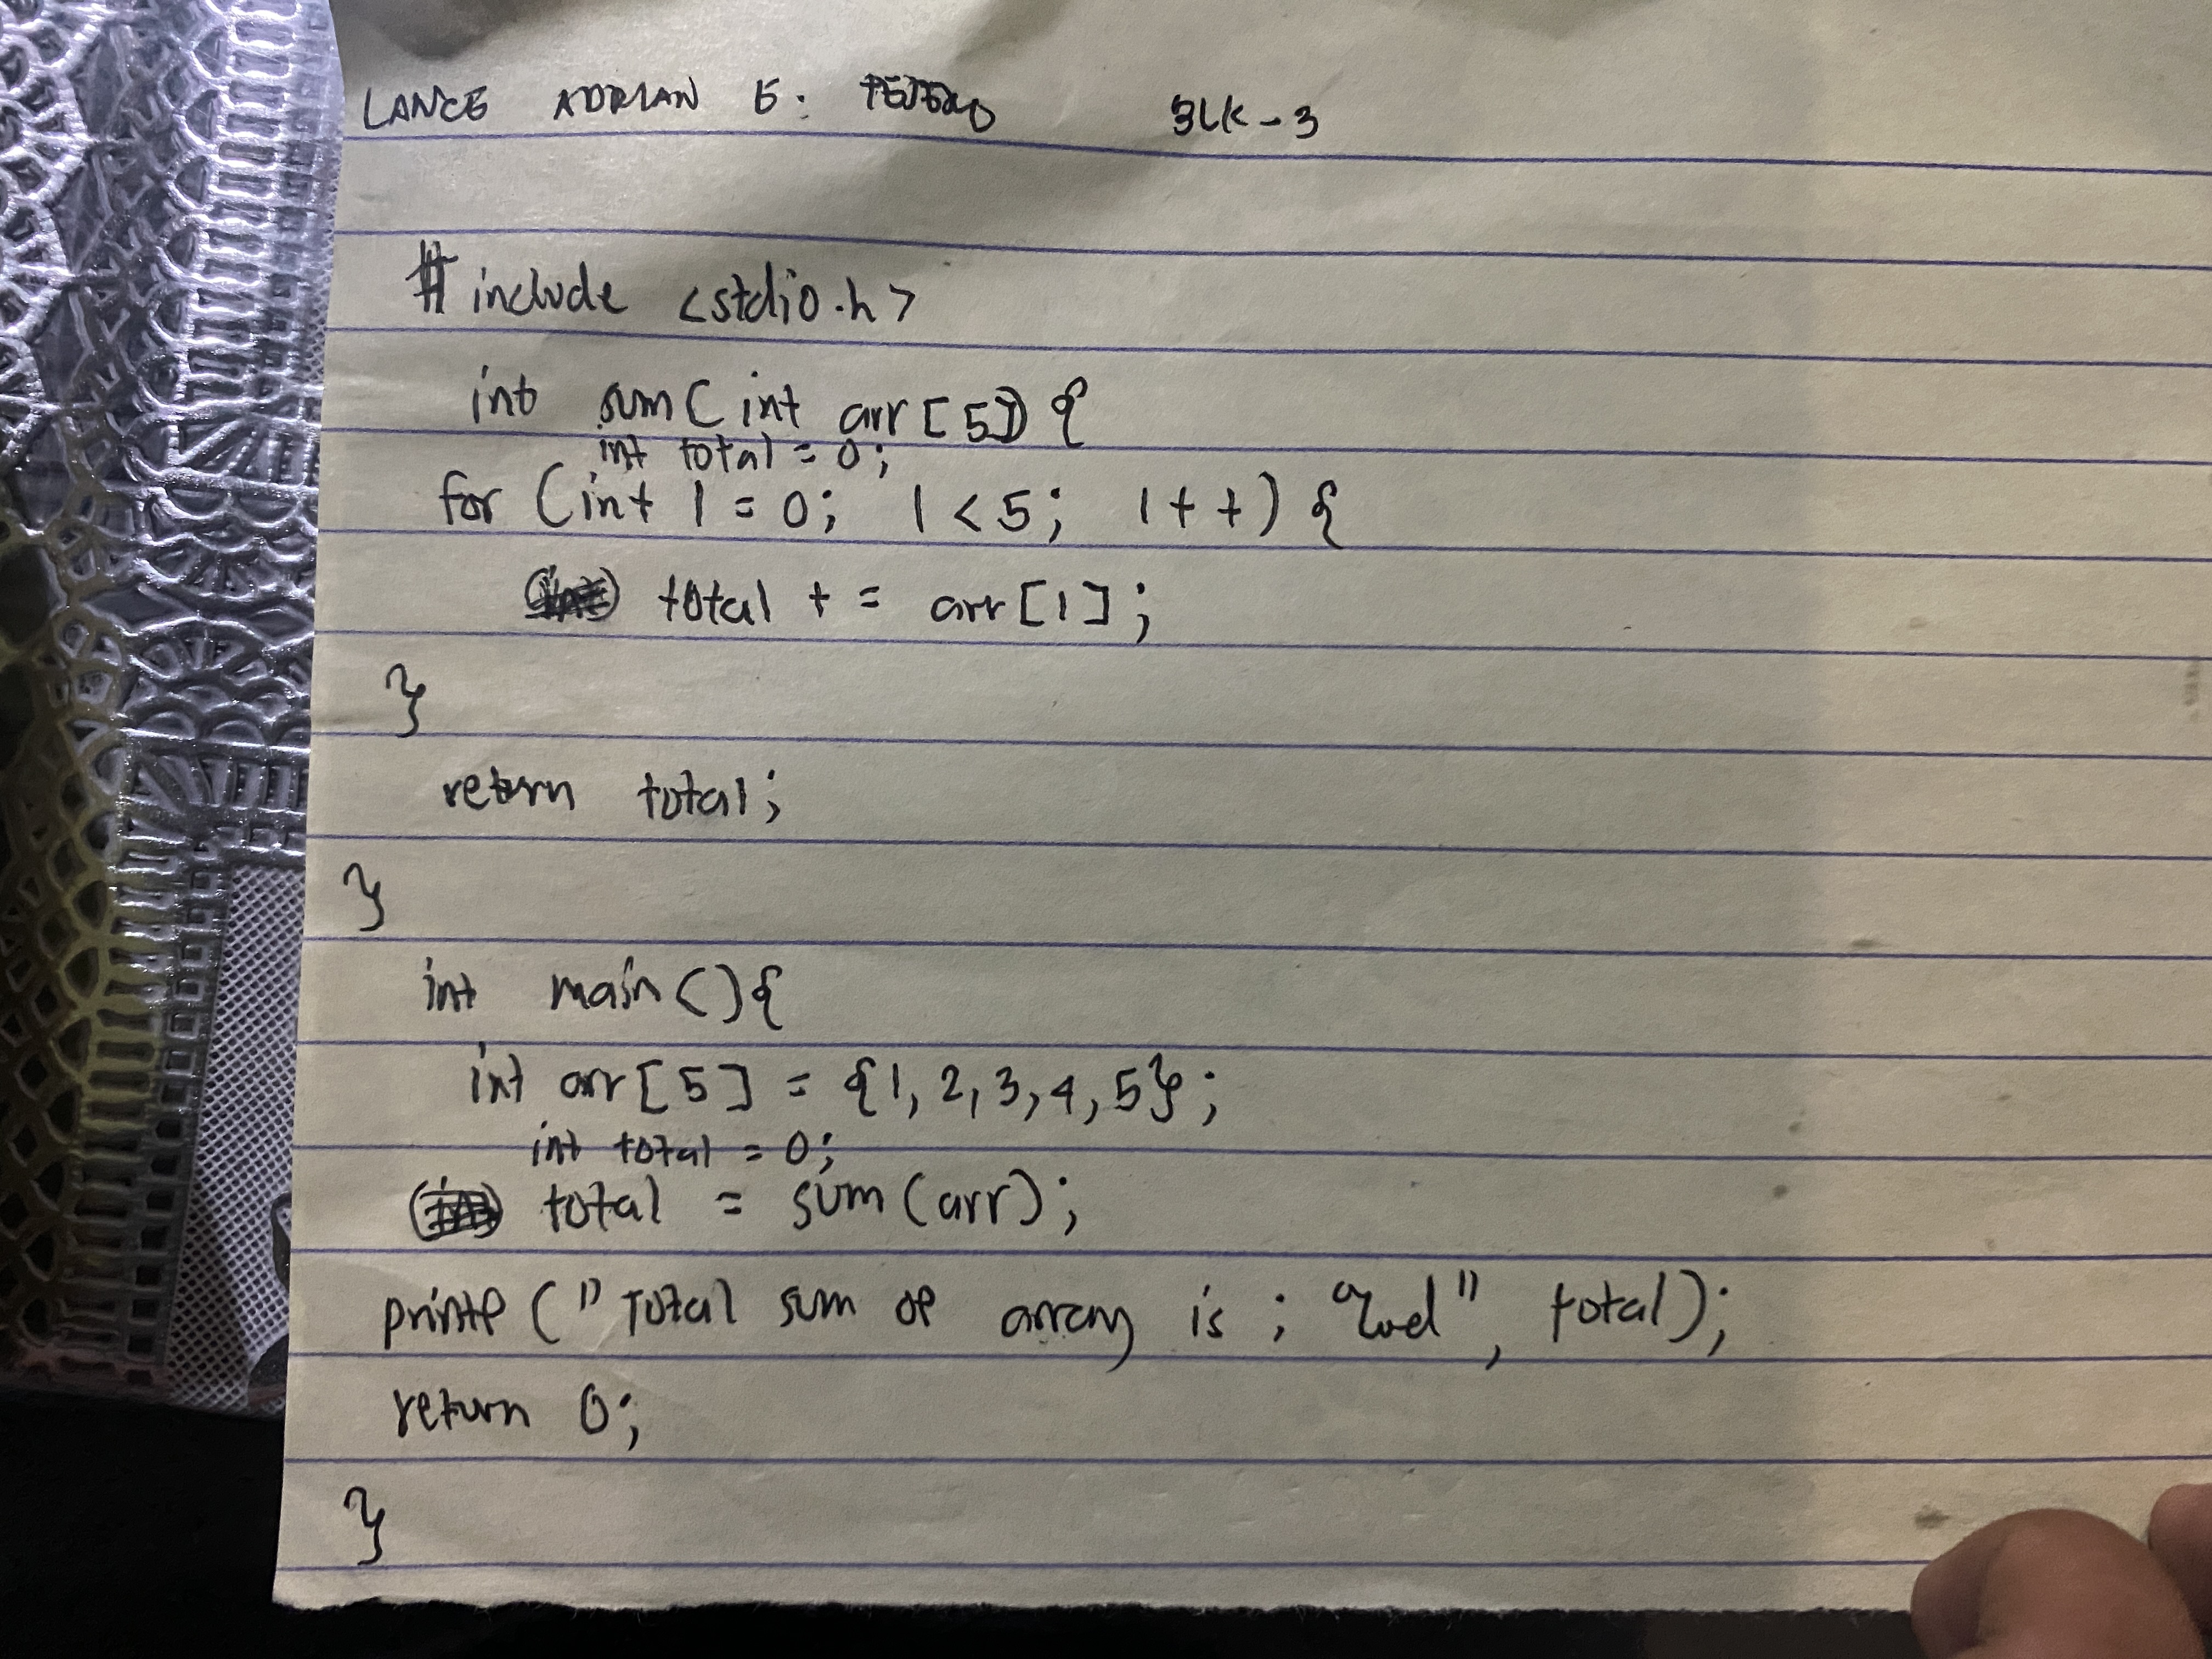 LANCE ADRIAN E. BLK-3
#include <stdio.h>
int sum(int arr[5]) {
int total = 0;
for (int I = 0; I < 5; I++) {
total += arr[I];
}
return total;
}
int main(){
int arr[5] = {1, 2, 3, 4, 5};
int total = 0;
total = sum(arr);
printf("Total sum of array is ; %d", total);
return 0;
}